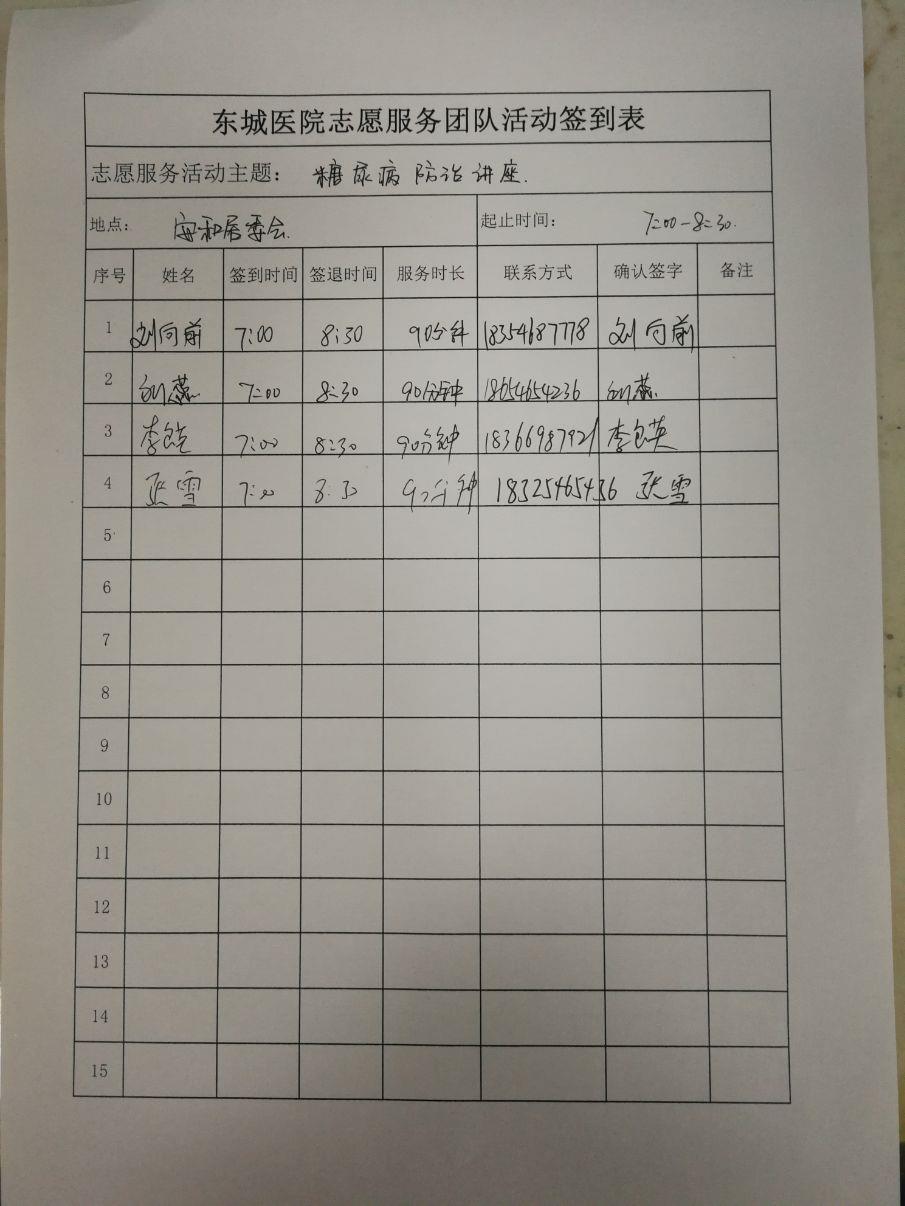 东城医院志愿服务团队活动签到表
志愿服务活动主题： 糖尿病防治讲座.
地点： 安和居委会. 起止时间： 7:00-8:30.
序号 姓名 签到时间 签退时间 服务时长 联系方式 确认签字 备注
1 刘向前 7:00 8:30 90分钟 18354687778 刘向前
2 刘燕 7:00 8:30 90分钟 18654654236 刘燕
3 7:00 8:30 90分钟 18366987921
4 张雪 7:00 8:30 90分钟 18325465436 张雪
5
6
7
8
9
10
11
12
13
14
15